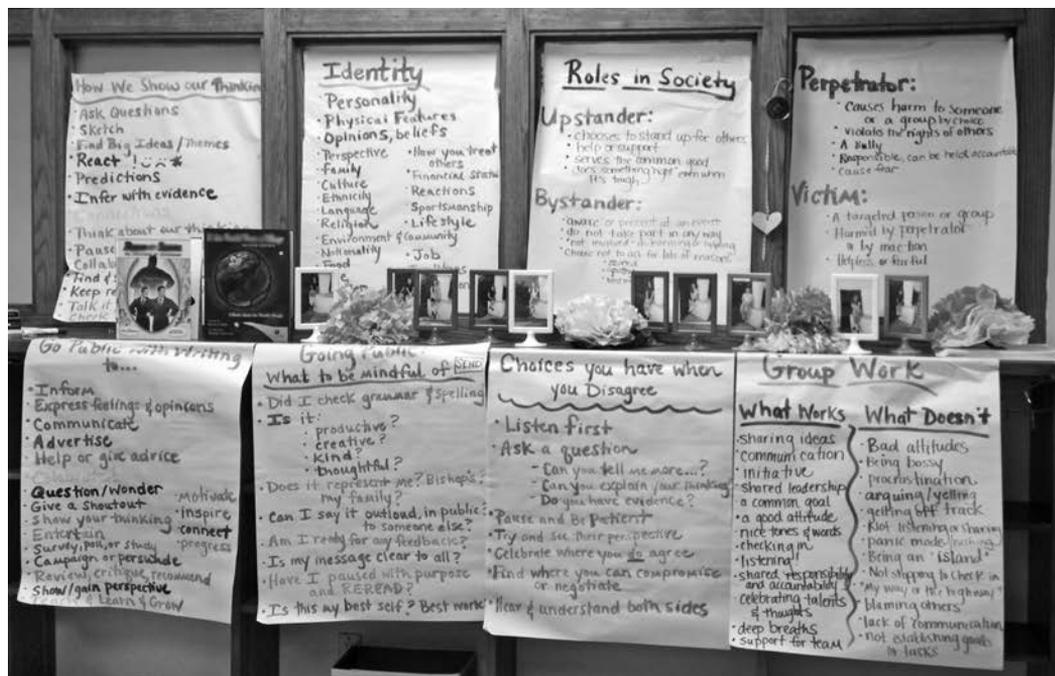 How We Show our Thinking
· Ask Questions
· Sketch
· Find Big Ideas/Themes
· React !
· Predictions
· Infer with evidence
· Connections
· Think about our thinking
· Pause
· Find &
· Keep re
· Talk it
check
Identity
· Personality
· Physical Features
· Opinions, beliefs
· Perspective
· Family
· Culture
· Ethnicity
· Language
· Religion
· Environment & Community
· Nationality
· Food
· How you treat
others
· Financial Status
· Reactions
· Sportsmanship
· Lifestyle
· Job
Roles in Society
Upstander:
· chooses to stand up for others
· help or support
· serves the common good
· does something "right" even when
it's tough
Bystander:
· aware or present at an event
· do not take part in any way
· "not involved" in harming or helping
· Choose not to act for lots of reasons
Perpetrator:
· causes harm to someone
or a group by choice
· violates the rights of others
· A Bully
· Responsible, can be held accountable
· cause fear
Victim:
· A targeted person or group
· Harmed by perpetrator
or by inaction
· Helpless or fearful
Go Public with Writing
to...
· Inform
· Express feelings & opinions
· Communicate
· Advertise
· Help or give advice
· Question/Wonder
· Give a Shoutout
· Show your thinking
· Entertain
· Survey, poll, or study
· Campaign or persuade
· Review, critique, recommend
· Show/gain perspective
· Teach & Learn & Grow
· Motivate
· Inspire
· connect
· progress
Going Public:
What to be mindful of SEND
· Did I check grammar & spelling
· Is it:
· productive?
· creative?
· kind?
· thoughtful?
· Does it represent me? Bishop's?
my family?
· Can I say it outloud, in public?
to someone else?
· Am I ready for any feedback?
· Is my message clear to all?
· Have I paused with purpose
and REREAD?
· Is this my best self? Best work?
Choices you have when
you Disagree
· Listen first
· Ask a question
- Can you tell me more...?
- Can you explain your thinking
- Do you have evidence?
· Pause and Be Patient
· Try and see their perspective
· Celebrate where you do agree
· Find where you can compromise
or negotiate
· Hear & understand both sides
Group Work
What Works
· sharing ideas
· communication
· initiative
· shared leadership
· a common goal
· a good attitude
· nice tones & words
· checking in
· listening
· shared responsibility
and accountability
· celebrating talents
& thoughts
· deep breaths
· support for team
What Doesn't
· Bad attitudes
· Being bossy
· procrastination
· arguing/yelling
· getting off track
· Not listening or sharing
· panic mode/rushing
· Being an "island"
· Not stopping to check in
· "My way or the highway"
· blaming others
· lack of communication
· not establishing goals
or tasks